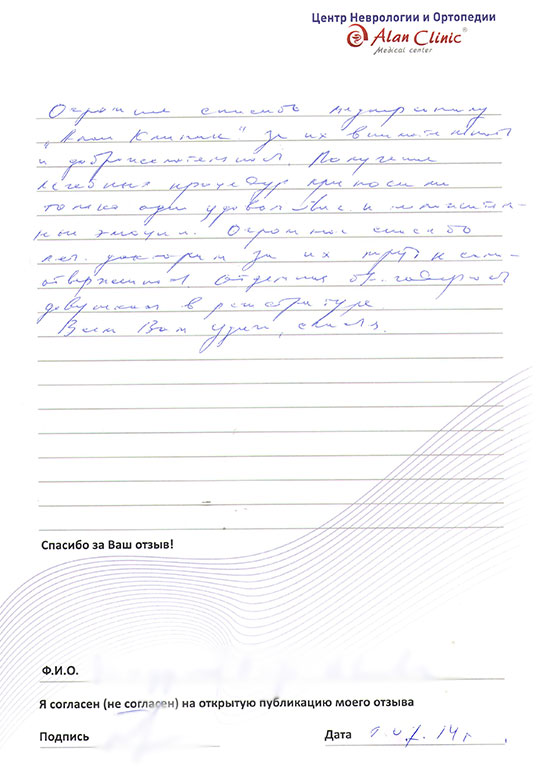 Центр Неврологии и Ортопедии
Alan Clinic®
Medical center
Огромное спасибо медперсоналу
„Алан Клиник“ за их внимательность
и доброжелательность. Получение
лечебных процедур приносили
только одно удовольствие и положитель-
ные эмоции. Огромное спасибо
леч. докторам за их труд и само-
отверженность. Отдельная благодарность
девушкам в регистратуре.
Всем Вам удачи, счастья.
Спасибо за Ваш отзыв!
Ф.И.О.
Я согласен (не согласен) на открытую публикацию моего отзыва
Подпись
Дата 9.07.14г